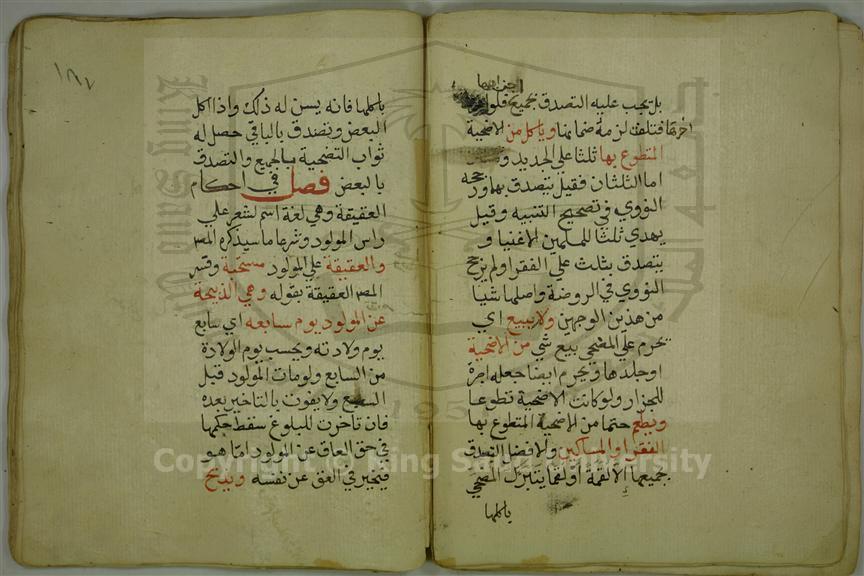 بل تجب عليه التصدق بجميعها فلو
اخرها فتلفت لزمه ضمانها وياكل من الاضحية
المتطوع بها ثلثا علي الجديد
اما الثلثان فقيل يتصدق بهما ورجحه
النووي في تصحيح التنبيه وقيل
يهدي ثلثا للمسلمين الاغنيا و
يتصدق بثلث علي الفقرا ولم يرجح
النووي في الروضة واصلها شيا
من هذين الوجهين ولا يبيع اي
يحرم علي المضحي بيع شي من الاضحية
او جلدها ويحرم ايضا جعله اجرة
للجزار ولو كانت الاضحية تطوعا
ويطعم حتما من الاضحية المتطوع بها
الفقرا والمساكين والافضل التصدق
بجميعها الا لقمة او لقما يتبرك المضحي
باكلها
١٨٧
باكلها فانه يسن له ذلك واذا اكل
البعض وتصدق بالباقي حصل له
ثواب التضحية بالجميع والتصدق
بالبعض فصل في احكام
العقيقة وهي لغة اسم لشعر علي
راس المولود وشرعا ما سيذكره المص
والعقيقة علي المولود مستحبة وفسر
المص العقيقة بقوله وهي الذبيحة
عن المولود يوم سابعه اي سابع
يوم ولادته ويحسب يوم الولادة
من السابع ولو مات المولود قبل
السابع ولا يفوت بالتاخير بعده
فان تاخرت للبلوغ سقط حكمها
في حق العاق عن المولود اما هو
فيخير في العق عن نفسه ويذبح
Copyright © King Saud University
195